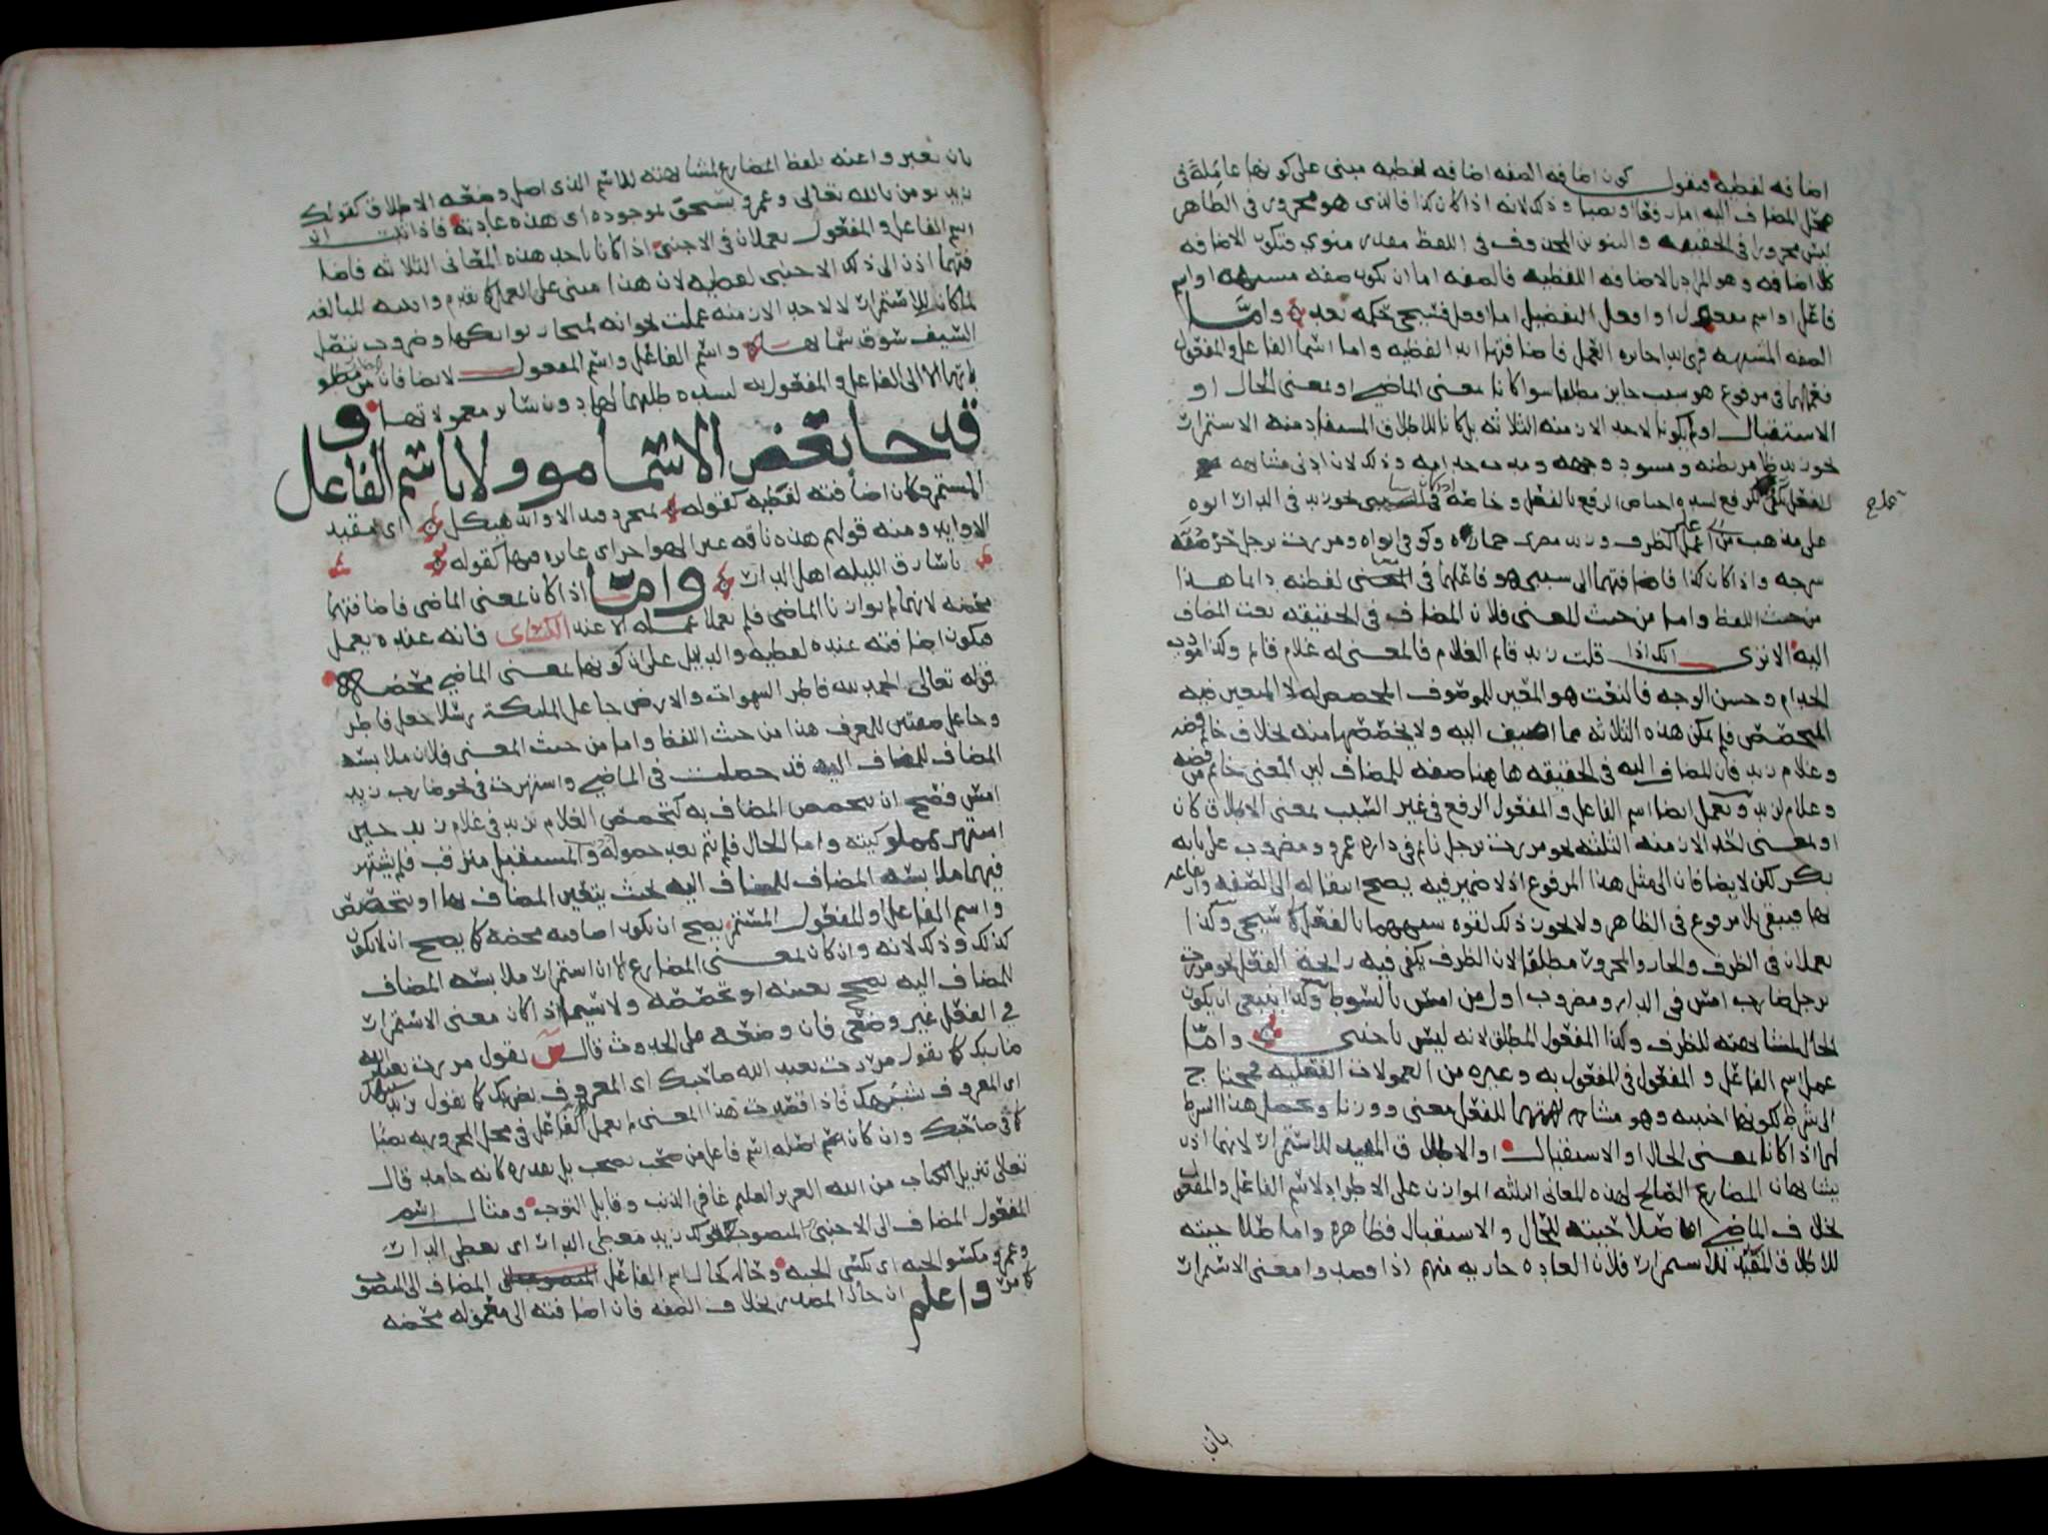 اضافه لفطيه فيقول كون اضافه الصفه اضافه لفطيه مبنى على كونها عاملة فى
محل المضاف اليه اما رفعا او نصبا وذلك لانه اذا كان كذا فالذى هو مجرور فى الطاهر
ليس مجرورا فى الحقيقه والتنوين المحذوف فى اللفظ مقدر منوي فتكون الاضافه
كلا اضافه وهو المراد بالاضافه اللفطيه فالصفه اما ان تكون صفه مشبهه او اسم
فاعل او اسم مفعول او افعل التفضيل اما افعل فسيجى حكمه بعد واما
الصفه المشبهه فهى ابدا جايزه العمل فاضافتها ابدا لفظيه واما اسما الفاعل والمفعول
فعملهما فى مرفوع هو سبب جايز مطلقا سوا كانا بمعنى الماضي او بمعنى الحال او
الاستقبال او لم يكونا لاحد الازمنه الثلاثه بل كانا للاطلاق المستفاد منه الاستمرار
نحو زيد ضامر بطنه ومسود وجهه ومودب خدامه وذلك لان ادنى مشابهه
الفعل يكفى لرفع لشده اختصاص الرفع بالفعل وخاصة فى نحو زيد فى الدار ابوه
على مذهب من اعمل الظرف وزيد مصرى حماره وكوفى ابواه ومررت برجل خز صفه
سرجه واذا كان كذا فاضافتهما الى سببى هو فاعلهما فى المعنى لفطيه دايما هذا
من حيث اللفظ واما من حيث المعنى فلان المضاف فى الحقيقه نعت المضاف
اليه الا ترى انك اذا قلت زيد قايم الغلام فالمعنى له غلام قايم وكذا مودب
الخدام وحسن الوجه فالنعت هو المعين للموصوف المخصص له لا المتعين فيه
المتخصص فلم يكن هذه الثلاثه مما اضيف اليه ولا يخصصها منه بخلاف خاتم فضه
وغلام زيد فان المضاف اليه فى الحقيقه هاهنا صفه للمضاف اذ المعنى خاتم من فضه
وغلام لزيد ويعمل ايضا اسم الفاعل والمفعول الرفع فى غير السبب بمعنى الاطلاق كان
او بمعنى احد الازمنه الثلثه نحو مررت برجل نايم فى داره عمرو ومضروب على بابه
بكر لكن لا يضافان الى مثل هذا المرفوع اذ لا ضمير فيه يصح انتقاله الى الصفه وارتفاعه
بها فيبقى بلا مرفوع فى الظاهر ولا يجوز ذلك لقوه شبههما بالفعل كما سيجى وكذا
يعملان فى الظرف والجار والمجرور مطلقا لان الظرف يكفى فيه رايحة الفعل نحو مررت
برجل ضارب امس فى الدار ومضروب اول من امس بالسوط وكذا ينبغى ان يكون
الحال لمشابهته للظرف وكذا المفعول المطلق لانه ليس باجنبى واما
عمل اسم الفاعل والمفعول فى المفعول به وغيره من المعمولات الفعليه فمحتاج
الى شرط لكونها اجنبيه وهو مشابهتهما للفعل معنى ووزنا ويحصل هذا الشرط
لهما اذا كانا بمعنى الحال او الاستقبال او الاطلاق المفيد للاستمرار لانهما اذن
يشابهان المضارع الصالح لهذه المعانى الثلثه الموازن على الاطراد لاسم الفاعل والمفعول
بخلاف الماضي اما صلاحيته للحال والاستقبال فظاهره واما صلاحيته
للاطلاق المفيد للاستمرار فلان العاده جاريه منهم اذا قصدوا معنى الاستمرار
بان
بان يعبروا عنه بلفظ المضارع لمشابهته للاسم الذى اصل وضعه الاطلاق كقولك
زيد يومن بالله تعالى وعمرو يستحق بموجوده اى هذه عادته فاذا ثبت ان
اسم الفاعل والمفعول يعملان فى الاجنبى اذا كانا باحد هذه المعانى الثلاثه فاضا
فتهما اذن الى ذلك الاجنبى لفطيه لان هذا مبنى على العمل كما تقدم وابنيه المبالغه
لما كان للاستمرار لا لاحد الازمنه عملت نحو انه لمنحار بوايكها وضروب بنصل
السيف سوق سمانها واسم الفاعل واسم المفعول لا يضافان من مطلو
باتهما الا الى الفاعل والمفعول به لشده طلبهما لهما دون ساير معمولاتهما و
قد جا بعض الاسما موولا باسم الفاعل
المستمر وكان اضافته لفظيه كقوله بمنجرد قيد الاوابد هيكل اى مقيد
الاوابد ومنه قولهم هذه ناقه عبر الهواجر اى عابره فيها كقوله
يا سارق الليله اهل الدار واما اذا كان بمعنى الماضى فاضافتهما
محضه لانهما لم يوازنا الماضى فلم يعملا عمله الا عند الكسائى فانه عنده يعمل
فيكون اضافته عنده لفطيه والدليل على ان كونها بمعنى الماضي محضه
قوله تعالى الحمد لله فاطر السموات والارض جاعل الملئكة رسلا جعل فاطر
وجاعل صفتين للمعرف هذا من حيث اللفظ واما من حيث المعنى فلان ملابسه
المضاف للمضاف اليه قد حصلت فى الماضي واشتهرت فى نحو ضارب زيد
امس فصح ان يتخصص المضاف به كتخصص الغلام بزيد فى غلام زيد حين
اشتهر بمملوكيته واما الحال فلم يتم بعد حصوله والمستقبل مترقب فلم يشتهر
فيهما ملابسه المضاف للمضاف اليه بحيث يتعين المضاف بها او يتخصص
واسم الفاعل او المفعول المستمر يصح ان يكون اضافته محضه كما يصح ان لا يكون
كذلك وذلك لانه وان كان بمعنى المضارع الا ان استمرار ملابسه المضاف
للمضاف اليه يصحح تعينه او تخصصه ولا سيما اذ كان معنى الاستمرار
فى الفعل غير وضعى فان وضعه على الحدوث قال س تقول مررت بعبد الله
ضاربك كما تقول مررت بعبد الله صاحبك اى المعروف بضربك كما تقول بزيد شبهك
اى المعروف بشبهك فاذا قصدت هذا المعنى لم يعمل الفاعل فى محل المجرور به نصبا
كما فى صاحبك وان كان اصله اسم فاعل من صحب يصحب بل يقدره كانه جامد قال
تعالى تنزيل الكتاب من الله العزيز العليم غافر الذنب وقابل التوب ومثال اسم
المفعول المضاف الى الاجنبى المنصوب كقولك زيد معطى الدار اى يعطى الدار
وعمرو مكسو الجبه اى يكسى الجبه وحاله كحال اسم الفاعل المضاف الى المنصوب
كما مر واعلم ان حال المصدر بخلاف الصفه فان اضافته الى معموله محضه